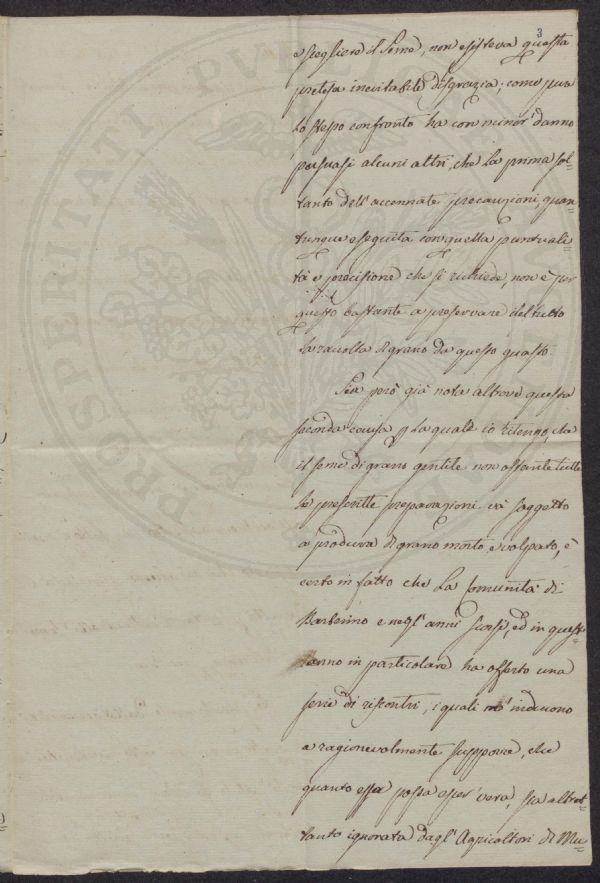 3
e scegliere il Seme, non esisteva questa
pretesa inevitabile disgrazia; come pure
lo stesso confronto ha con minor danno
persuasi alcuni altri, che la prima sol=
tanto dell'accennate precauzioni, quan=
tunque eseguita con quella puntuali=
tà e precisione che si richiede, non è per
questo bastante a preservare del tutto
la raccolta di grano da questo guasto.
Sia però già nota altrove questa
seconda causa p la quale io ritengo, che
il seme di grano gentile non ostante tutte
le prescritte preparazioni và soggetto
a produrre di grano morto, e volpato, è
certo in fatto che la Comunità di
Barberino e negl'anni scorsi, ed in quest=
anno in particolare ha offerto una
serie di riscontri, i quali m'inducono
a ragionevolmente supporre, che
quanto essa possa esser vera, sia altret=
tanto ignorata dagl'Agricoltori di Mu=
PROSPERITATI PVBLICAE